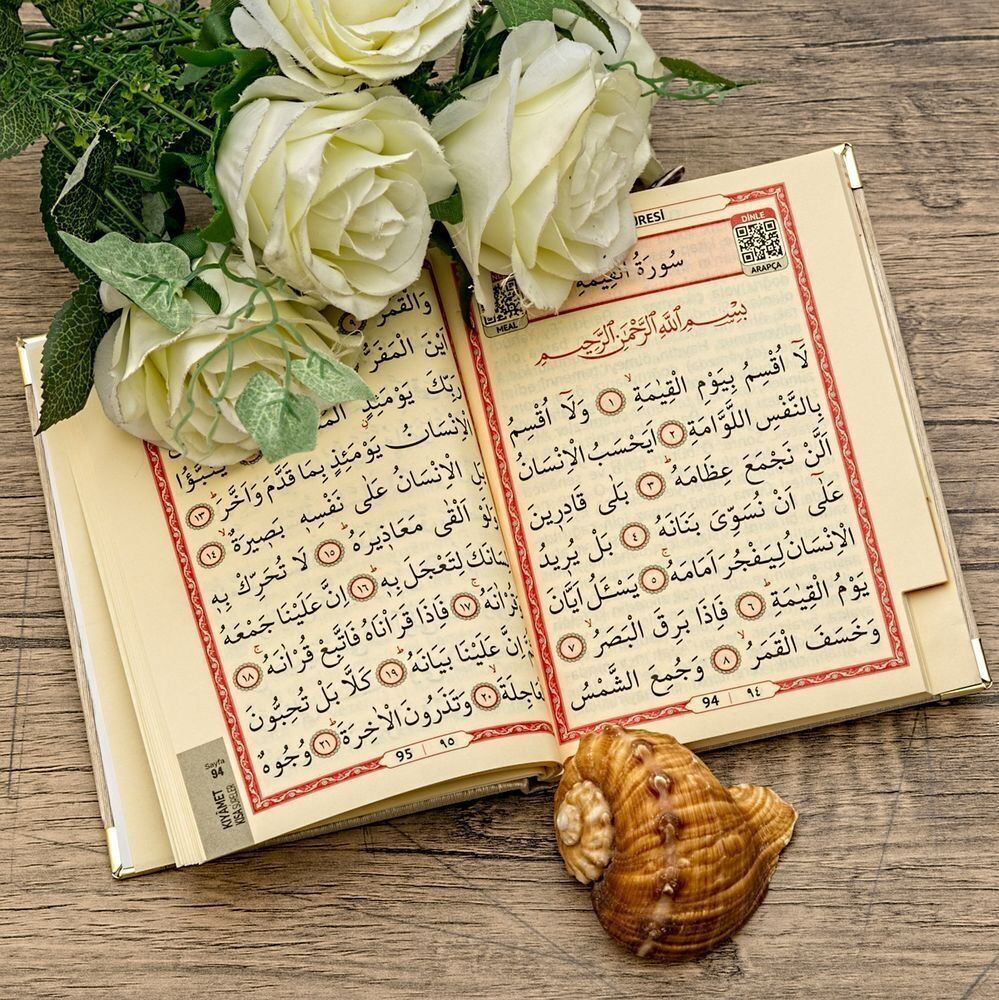 URESİ
DİNLE
ARAPÇA
MEAL
سورة القيمة
بِسْمِ اللّٰهِ الرَّحْمٰنِ الرَّحِيمِ
لَٓا اُقْسِمُ بِيَوْمِ الْقِيٰمَةِۙ ١ وَلَٓا اُقْسِمُ
بِالنَّفْسِ اللَّوَّامَةِ ٢ اَيَحْسَبُ الْاِنْسَانُ
اَلَّنْ نَجْمَعَ عِظَامَهُۜ ٣ بَلٰى قَادِرِينَ
عَلٰٓى اَنْ نُسَوِّيَ بَنَانَهُ ٤ بَلْ يُرِيدُ
الْاِنْسَانُ لِيَفْجُرَ اَمَامَهُۚ ٥ يَسْـَٔلُ اَيَّانَ
يَوْمُ الْقِيٰمَةِۜ ٦ فَاِذَا بَرِقَ الْبَصَرُۙ ٧
وَخَسَفَ الْقَمَرُۙ ٨ وَجُمِعَ الشَّمْسُ
94 | ٩٤
وَالْقَمَرُ
اَيْنَ الْمَفَرُّ
رَبِّكَ يَوْمَئِذٍ
يُنَبَّؤُا الْاِنْسَانُ يَوْمَئِذٍ بِمَا قَدَّمَ وَاَخَّرَۜ ١٣
بَلِ الْاِنْسَانُ عَلٰى نَفْسِهِ بَصِيرَةٌۙ ١٤
وَلَوْ اَلْقٰى مَعَاذِيرَهُۜ ١٥ لَا تُحَرِّكْ بِهِ
لِسَانَكَ لِتَعْجَلَ بِهِۜ ١٦ اِنَّ عَلَيْنَا جَمْعَهُ
وَقُرْاٰنَهُۚ ١٧ فَاِذَا قَرَاْنَاهُ فَاتَّبِعْ قُرْاٰنَهُۚ ١٨
ثُمَّ اِنَّ عَلَيْنَا بَيَانَهُۜ ١٩ كَلَّا بَلْ تُحِبُّونَ
الْعَاجِلَةَۙ ٢٠ وَتَذَرُونَ الْاٰخِرَةَۜ ٢١ وُجُوهٌ
95 | ٩٥
Sayfa
94
KIYÂMET
KISA SURELER